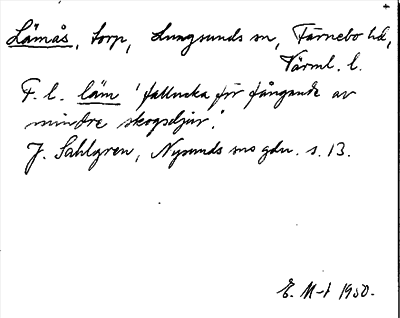 Lämås, torp, Lungsunds sn, Färnebo hd,
Värml. l.
F. l. läm 'fallucka för fångande av
mindre skogsdjur'.
J. Sahlgren, Nysunds sns gdn. s. 13.
E. M-t 1950.